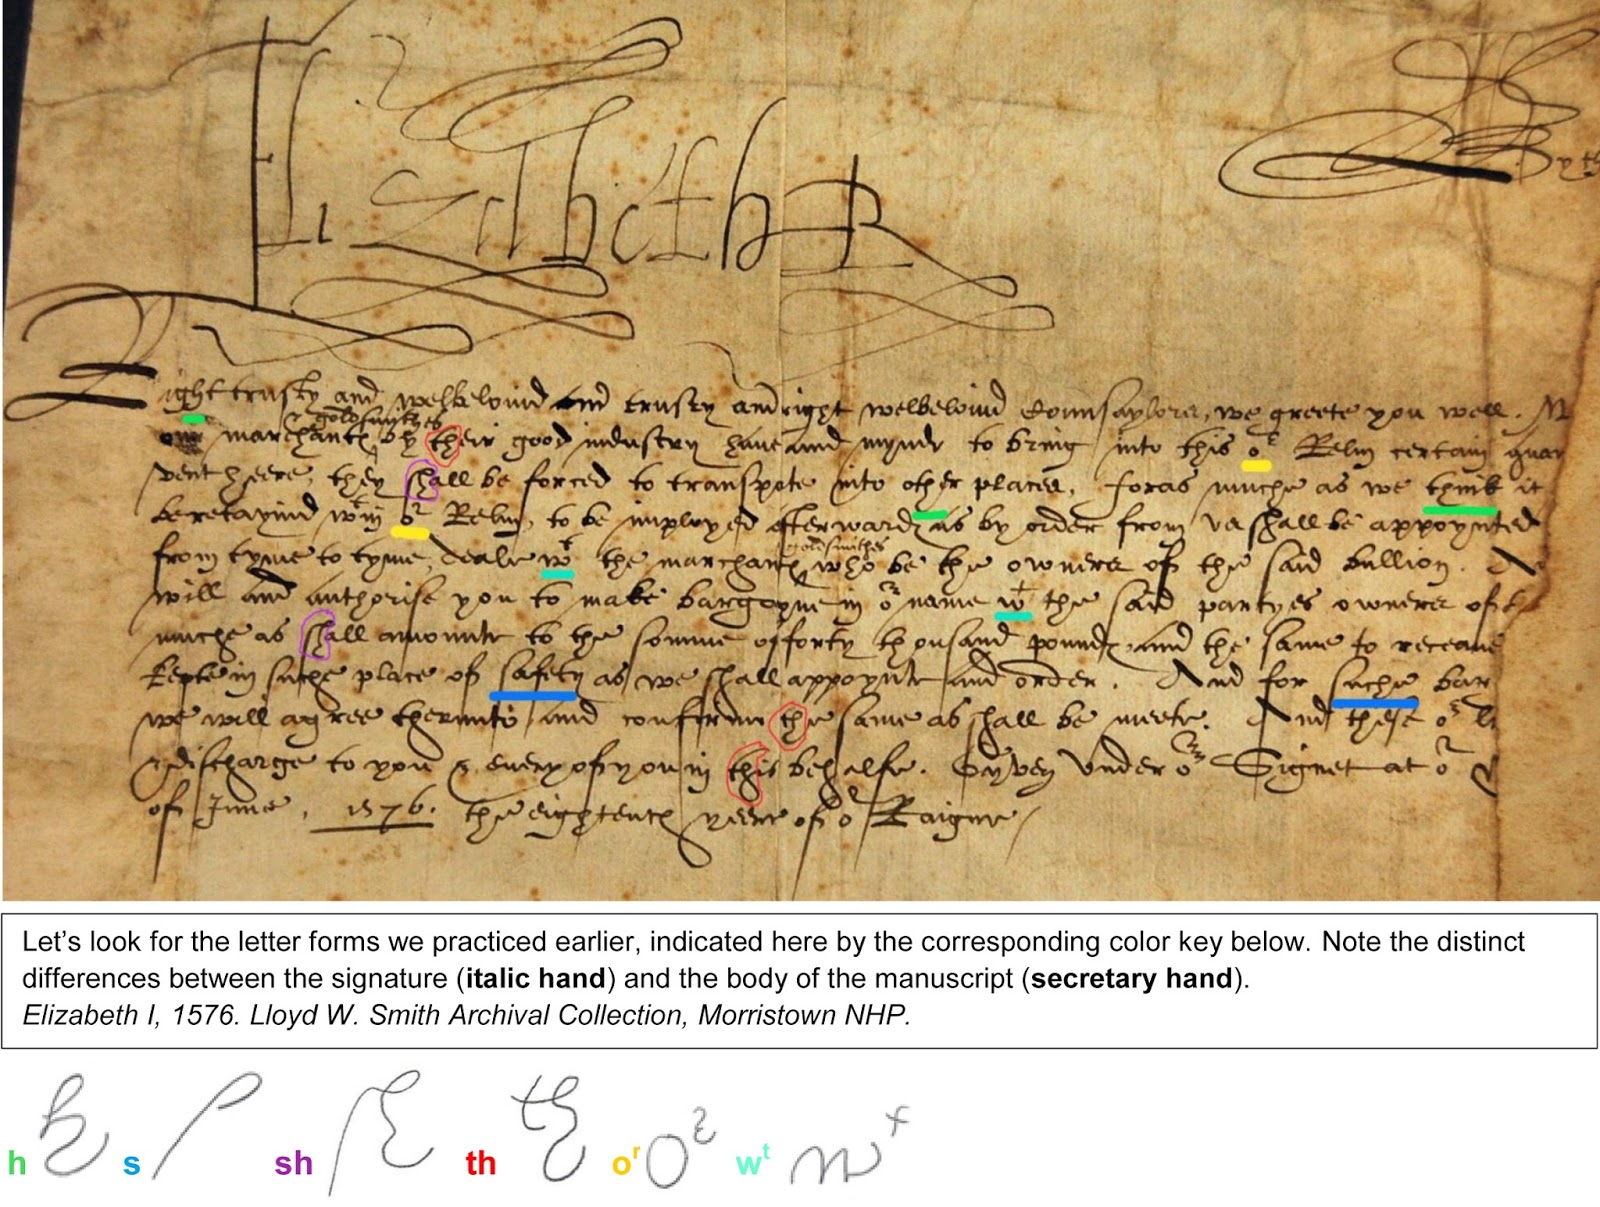 Elizabeth R
By th
Right trusty and welbelovid and trusty and right welbelovid Counsaylors, we greete you well.
goldsmithes
marchantes by their good industry have and mynde to bring into this oʳ Relm certain
heere, they shall be forced to transpote into other places, foras muche as we think it
be retaynid wᵗin oʳ Relm, to be imployed afterwardes as by order from us shall be appoynted
goldsmithes
from tyme to tyme, deale wᵗ the marchantes who be the owners of the said bullion.
will and authorise you to make bargayne in oʳ name wᵗ the said partyes owners of
muche as shall amounte to the somme of forty thousand poundes and the same to receave
kepte in suche place of safety as we shall appoynte and order. And for suche bar
we will agree therunto and confirme the same as shall be meete. And these oʳ
discharge to you & every of you in this behalfe. Gyven under oʳ Signet at oʳ
of June, 1576. the eightenth yeere of oʳ Raigne
Let's look for the letter forms we practiced earlier, indicated here by the corresponding color key below. Note the distinct
differences between the signature (italic hand) and the body of the manuscript (secretary hand).
Elizabeth I, 1576. Lloyd W. Smith Archival Collection, Morristown NHP.
h s sh th oʳ wᵗ